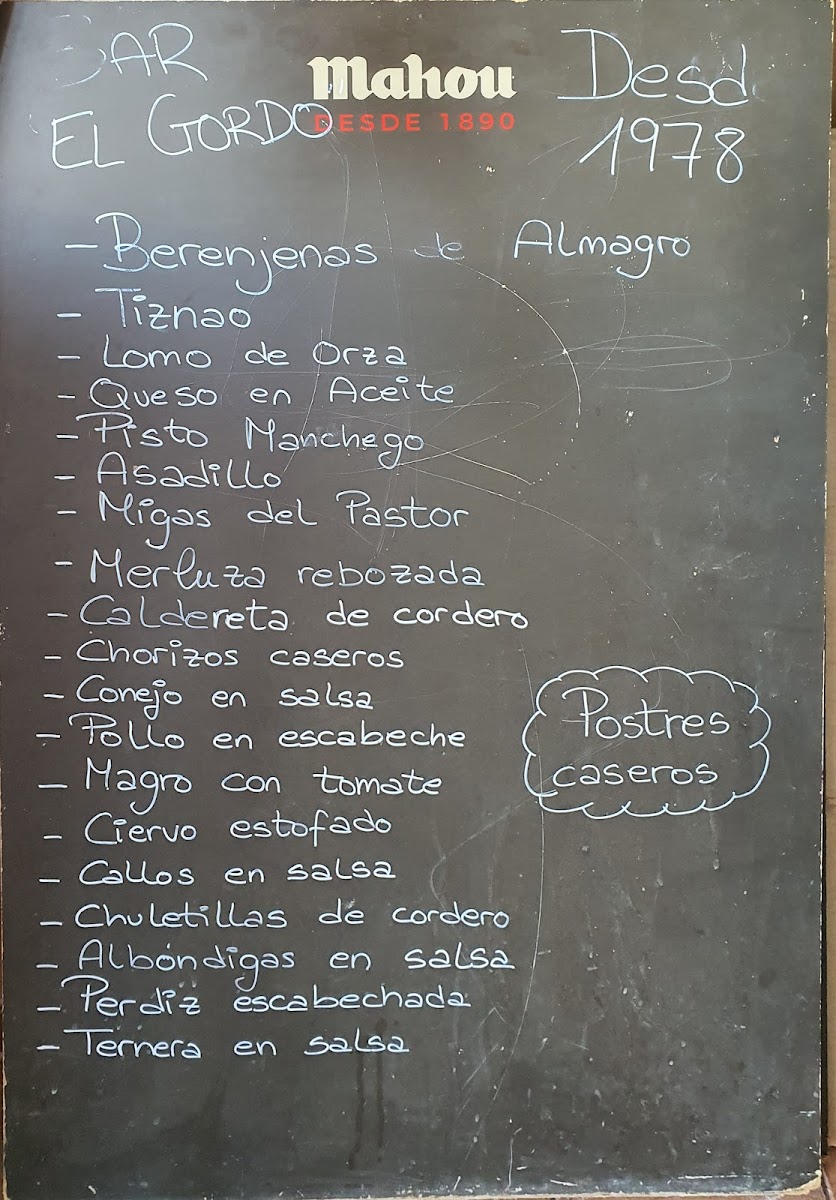 BAR
EL GORDO
Mahou
DESDE 1890
Desd
1978
- Berenjenas de Almagro
- Tiznao
- Lomo de Orza
- Queso en Aceite
- Pisto Manchego
- Asadillo
- Migas del Pastor
- Merluza rebozada
- Caldereta de cordero
- Chorizos caseros
- Conejo en salsa
- Pollo en escabeche
- Magro con tomate
- Ciervo estofado
- Callos en salsa
- Chuletillas de cordero
- Albóndigas en salsa
- Perdiz escabechada
- Ternera en salsa
Postres
caseros